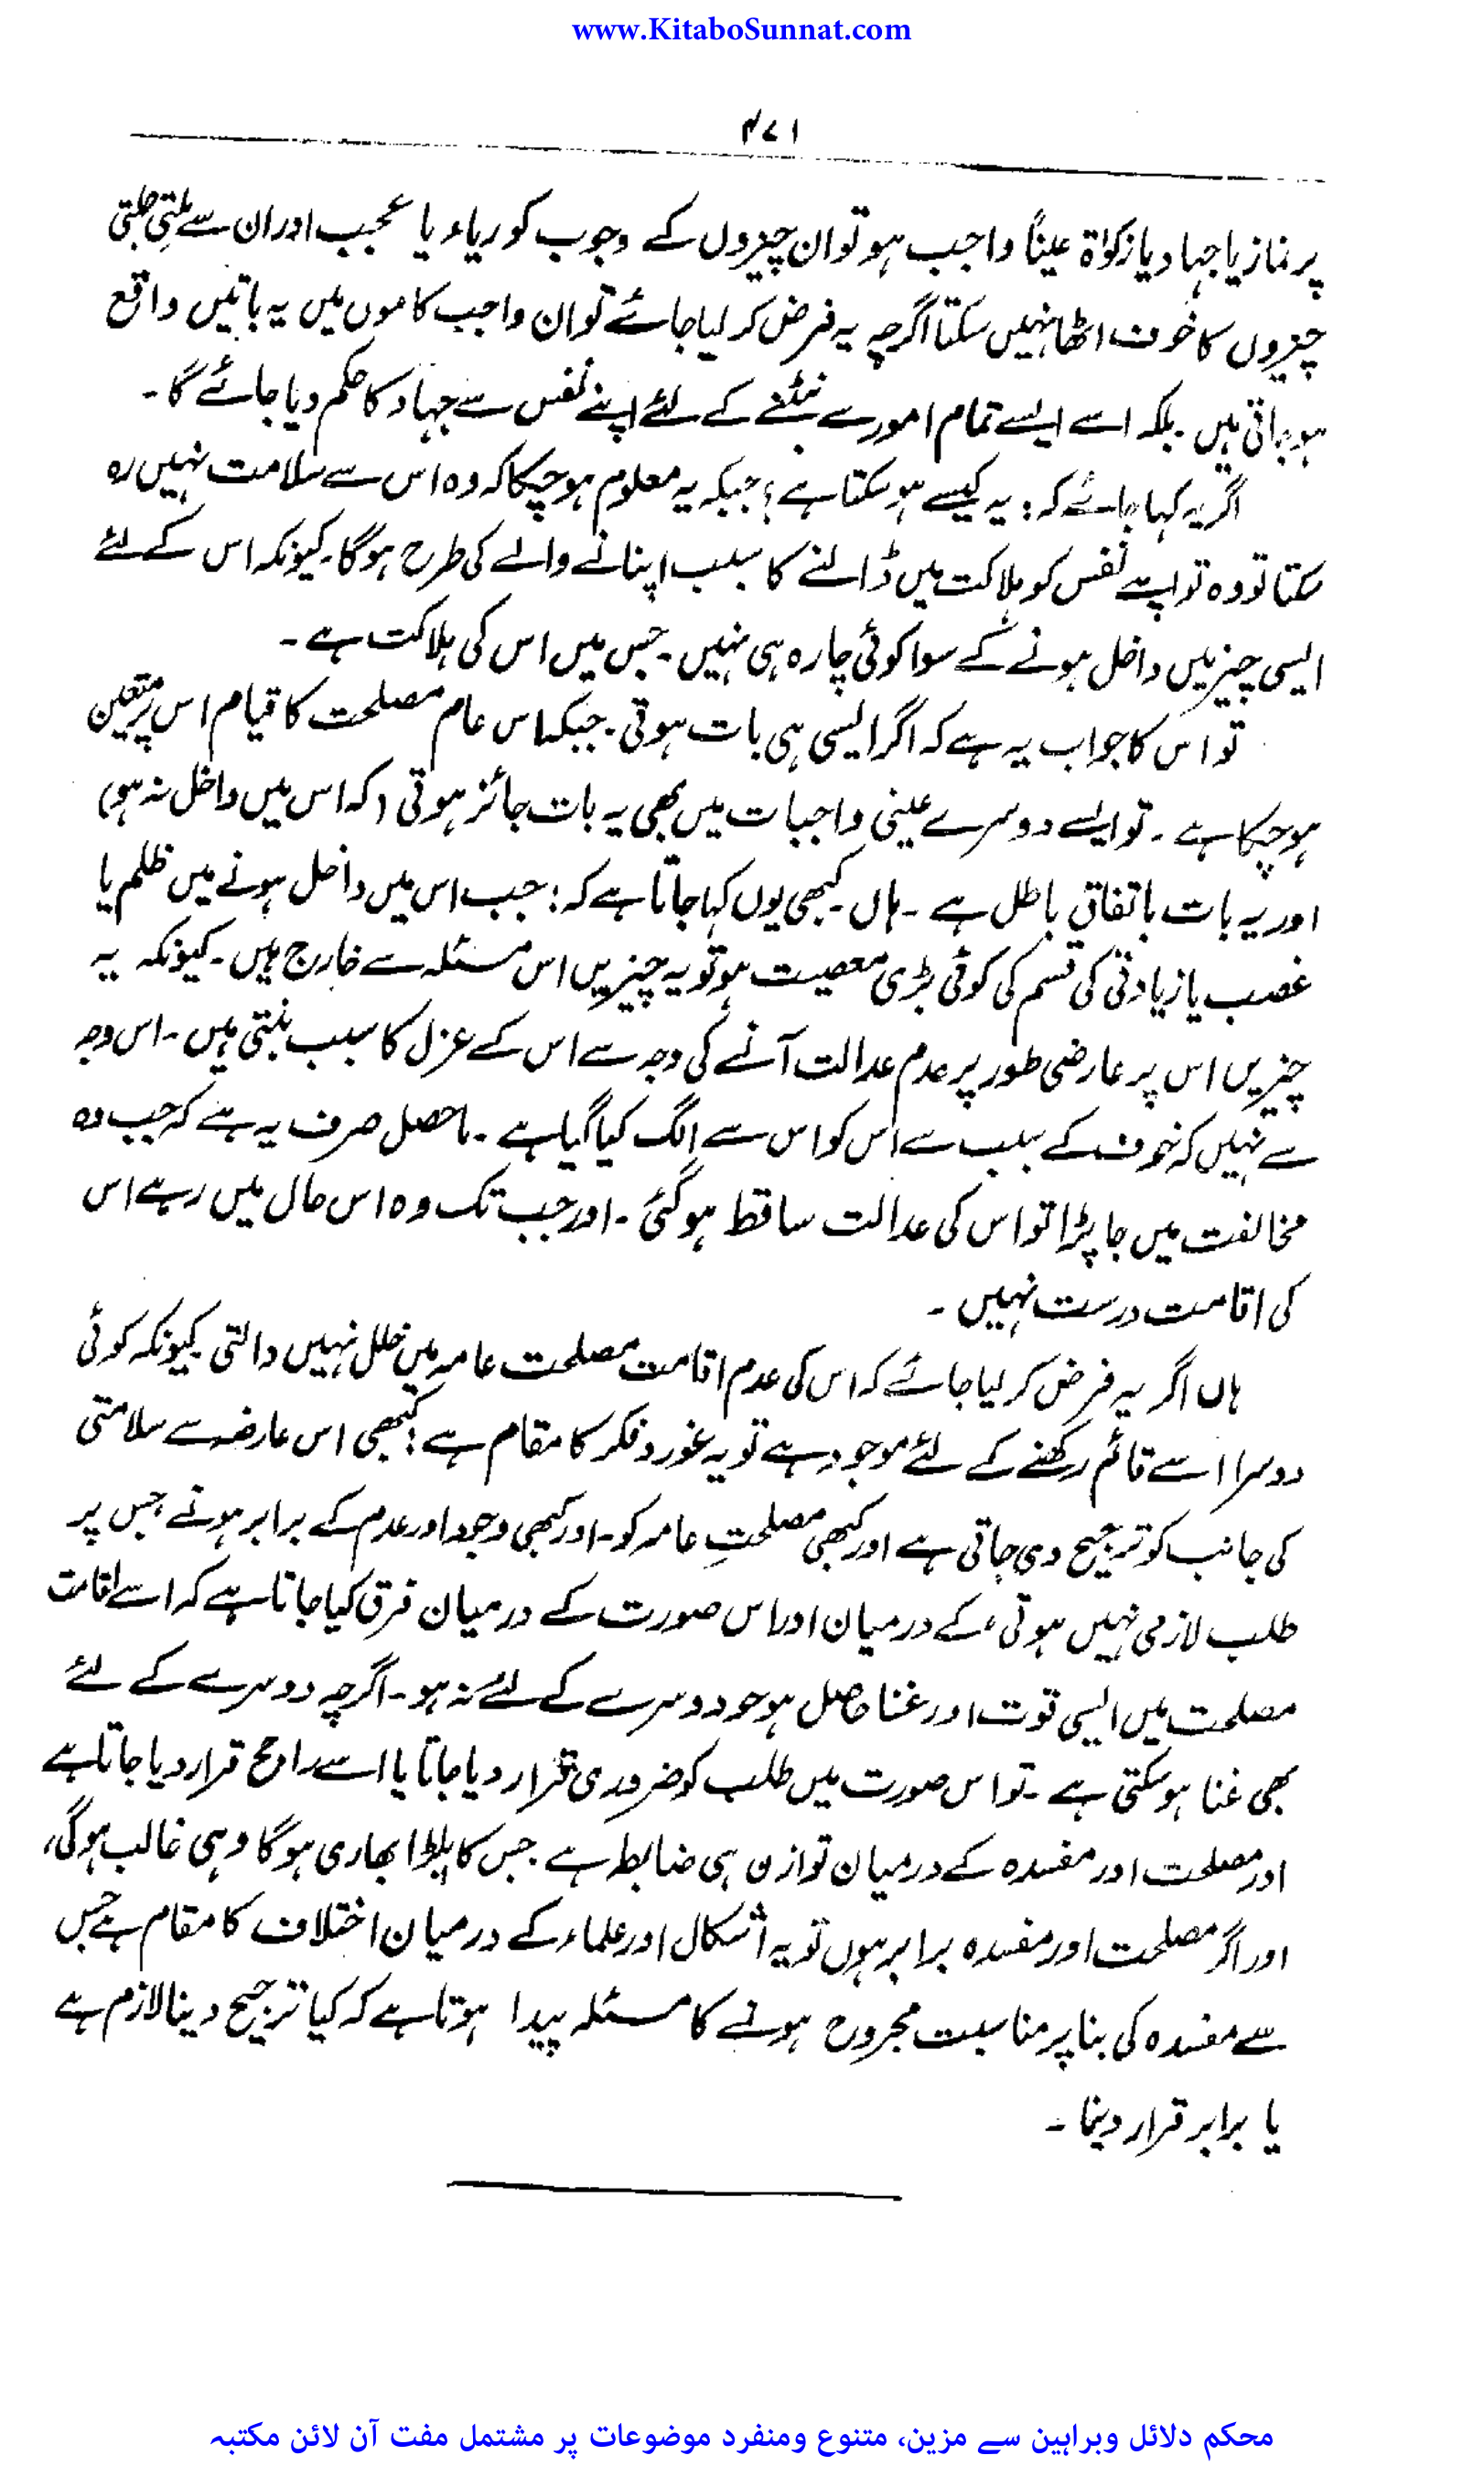 www.KitaboSunnat.com
۴۷۱
پر نماز یا جہاد یا زکوٰۃ عیناً واجب ہو تو ان چیزوں کے وجوب کو ریاء یا عجب اور ان سے ملتی جلتی
چیزوں کا خوف اٹھا نہیں سکتا اگرچہ یہ فرض کر لیا جائے تو ان واجب کاموں میں یہ باتیں واقع
ہو جاتی ہیں۔ بلکہ اسے ایسے تمام امور سے نبٹنے کے لئے اپنے نفس سے جہاد کا حکم دیا جائے گا۔
اگر یہ کہا جائے کہ: یہ کیسے ہو سکتا ہے؛ جبکہ یہ معلوم ہو چکا کہ وہ اس سے سلامت نہیں رہ
سکتا تو وہ تو اپنے نفس کو ہلاکت میں ڈالنے کا سبب اپنانے والے کی طرح ہوگا۔ کیونکہ اس کے لئے
ایسی چیز میں داخل ہونے کے سوا کوئی چارہ ہی نہیں۔ جس میں اس کی ہلاکت ہے۔
تو اس کا جواب یہ ہے کہ اگر ایسی ہی بات ہوتی۔ جبکہ اس عام مصلحت کا قیام اس پر متعین
ہو چکا ہے۔ تو ایسے دوسرے عینی واجبات میں بھی یہ بات جائز ہوتی (کہ اس میں داخل نہ ہو)
اور یہ بات باتفاق باطل ہے۔ ہاں۔ کبھی یوں کہا جاتا ہے کہ: جب اس میں داخل ہونے میں ظلم یا
غصب یا زیادتی کی قسم کی کوئی بڑی معصیت ہو تو یہ چیزیں اس مسئلہ سے خارج ہیں۔ کیونکہ یہ
چیزیں اس پر عارضی طور پر عدم عدالت آنے کی وجہ سے اس کے عزل کا سبب بنتی ہیں۔ اس وجہ
سے نہیں کہ خوف کے سبب سے اس کو اس سے الگ کیا گیا ہے۔ ماحصل صرف یہ ہے کہ جب وہ
مخالفت میں جا پڑا تو اس کی عدالت ساقط ہو گئی۔ اور جب تک وہ اس حال میں رہے اس
کی اقامت درست نہیں۔
ہاں اگر یہ فرض کر لیا جائے کہ اس کی عدم اقامت مصلحت عامہ میں خلل نہیں دالتی کیونکہ کوئی
دوسرا اسے قائم رکھنے کے لئے موجود ہے تو یہ غور و فکر کا مقام ہے؛ کبھی اس عارضہ سے سلامتی
کی جانب کو ترجیح دی جاتی ہے اور کبھی مصلحتِ عامہ کو۔ اور کبھی وجود اور عدم کے برابر ہونے، جس پر
طلب لازمی نہیں ہوتی، کے درمیان اور اس صورت کے درمیان فرق کیا جاتا ہے کہ اسے اقامت
مصلحت میں ایسی قوت اور غنا حاصل ہو جو دوسرے کے لئے نہ ہو۔ اگرچہ دوسرے کے لئے
بھی غنا ہو سکتی ہے۔ تو اس صورت میں طلب کو ضروری قرار دیا جاتا یا اسے راجح قرار دیا جاتا ہے
اور مصلحت اور مفسدہ کے درمیان توازن ہی ضابطہ ہے۔ جس کا پلڑا بھاری ہو گا وہی غالب ہو گی،
اور اگر مصلحت اور مفسدہ برابر ہوں تو یہ اشکال اور علماء کے درمیان اختلاف کا مقام ہے جس
سے مفسدہ کی بنا پر مناسبت مجروح ہونے کا مسئلہ پیدا ہوتا ہے کہ کیا ترجیح دینا لازم ہے
یا برابر قرار دینا۔
محکم دلائل وبراہین سے مزین، متنوع ومنفرد موضوعات پر مشتمل مفت آن لائن مکتبہ